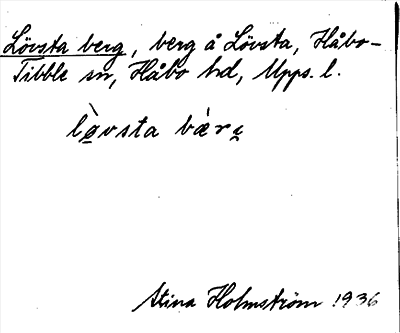 Lövsta berg, berg å Lövsta, Håbo-
Tibble sn, Håbo hd, Upps. l.
lø̀vsta bær
Stina Holmström 1936